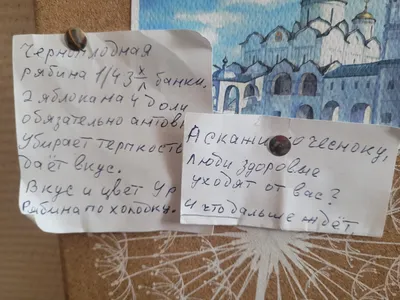 Черноплодная
рябина 1/4 3х л банки,
2 яблока на 4 доли
обязательно антов,
Убирает терпкость
даёт вкус.
Вкус и цвет ур
Рябина по холодку.
А скажи по чесноку,
люди здоровые
уходят от вас?
И что дальше ждёт,